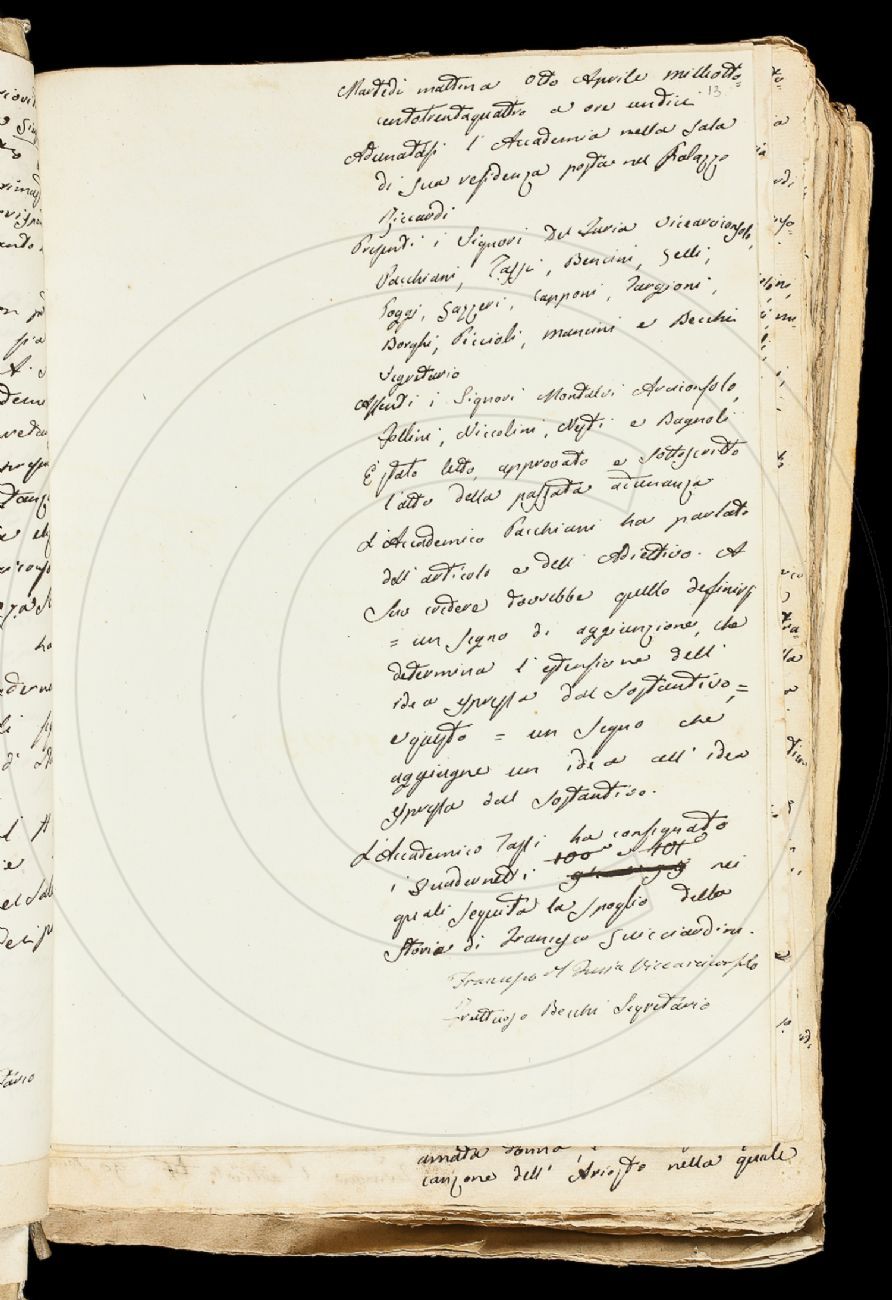 13
Martedì mattina Otto Aprile milleotto=
centotrentaquattro a ore undici
Adunatasi l'Accademia nella sala
di sua residenza posta nel Palazzo
Riccardi
Presenti i Signori Del Furia Vicearciconsolo,
Pacchiani, Tassi, Bencini, Gelli,
Poggi, Gazzeri, Capponi, Targioni,
Borghi, Piccioli, Mancini e Becchi
Segretario
Assenti i Signori Montalvi Arciconsolo,
Follini, Niccolini, Nesti e Bagnoli
È stato letto, approvato e sottoscritto
l'atto della passata adunanza
L'Accademico Pacchiani ha parlato
dell'articolo e dell'Adiettivo. A
suo credere dovrebbe quello definirsi
= un segno di aggiunzione, che
determina l'estensione dell'
idea espressa dal Sostantivo,=
e questo = un segno che
aggiugne un idea all'idea
espressa dal Sostantivo.
L'Accademico Tassi ha consegnato
i Quadernetti 100 e 101 nei
quali seguita lo spoglio della
Storia di Francesco Guicciardini.
Francesco del Furia Vicearciconsolo
Fruttuoso Becchi Segretario
amata donna
canzone dell'Ariosto nella quale